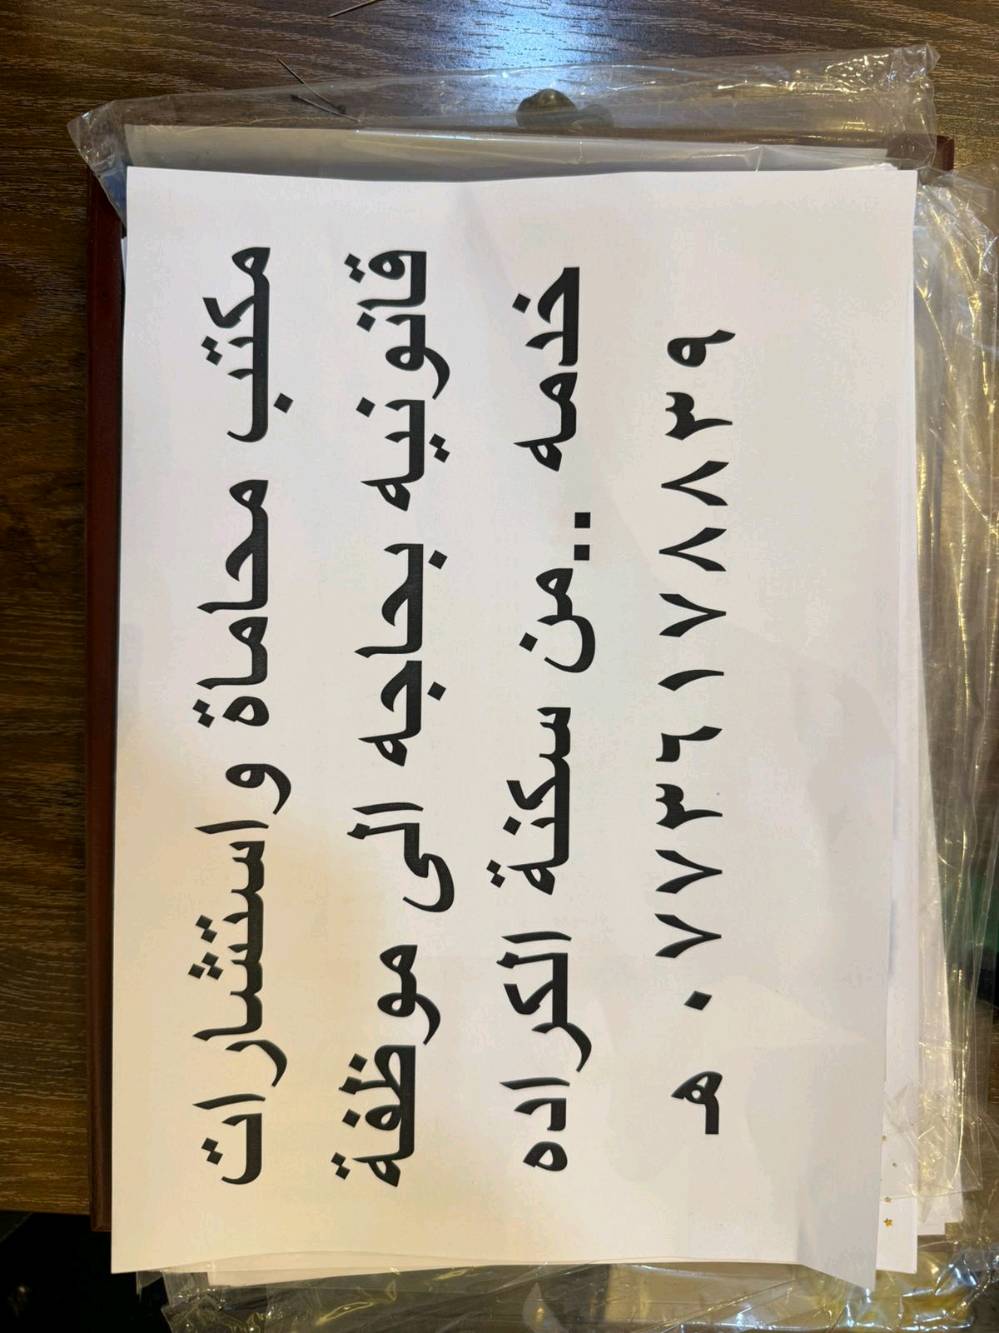 مكتب محاماة واستشارات
قانونيه بحاجه الى موظفة
خدمه ..من سكنة الكراده
٠٧٧٣٦١٧٨٨٣٩ هـ